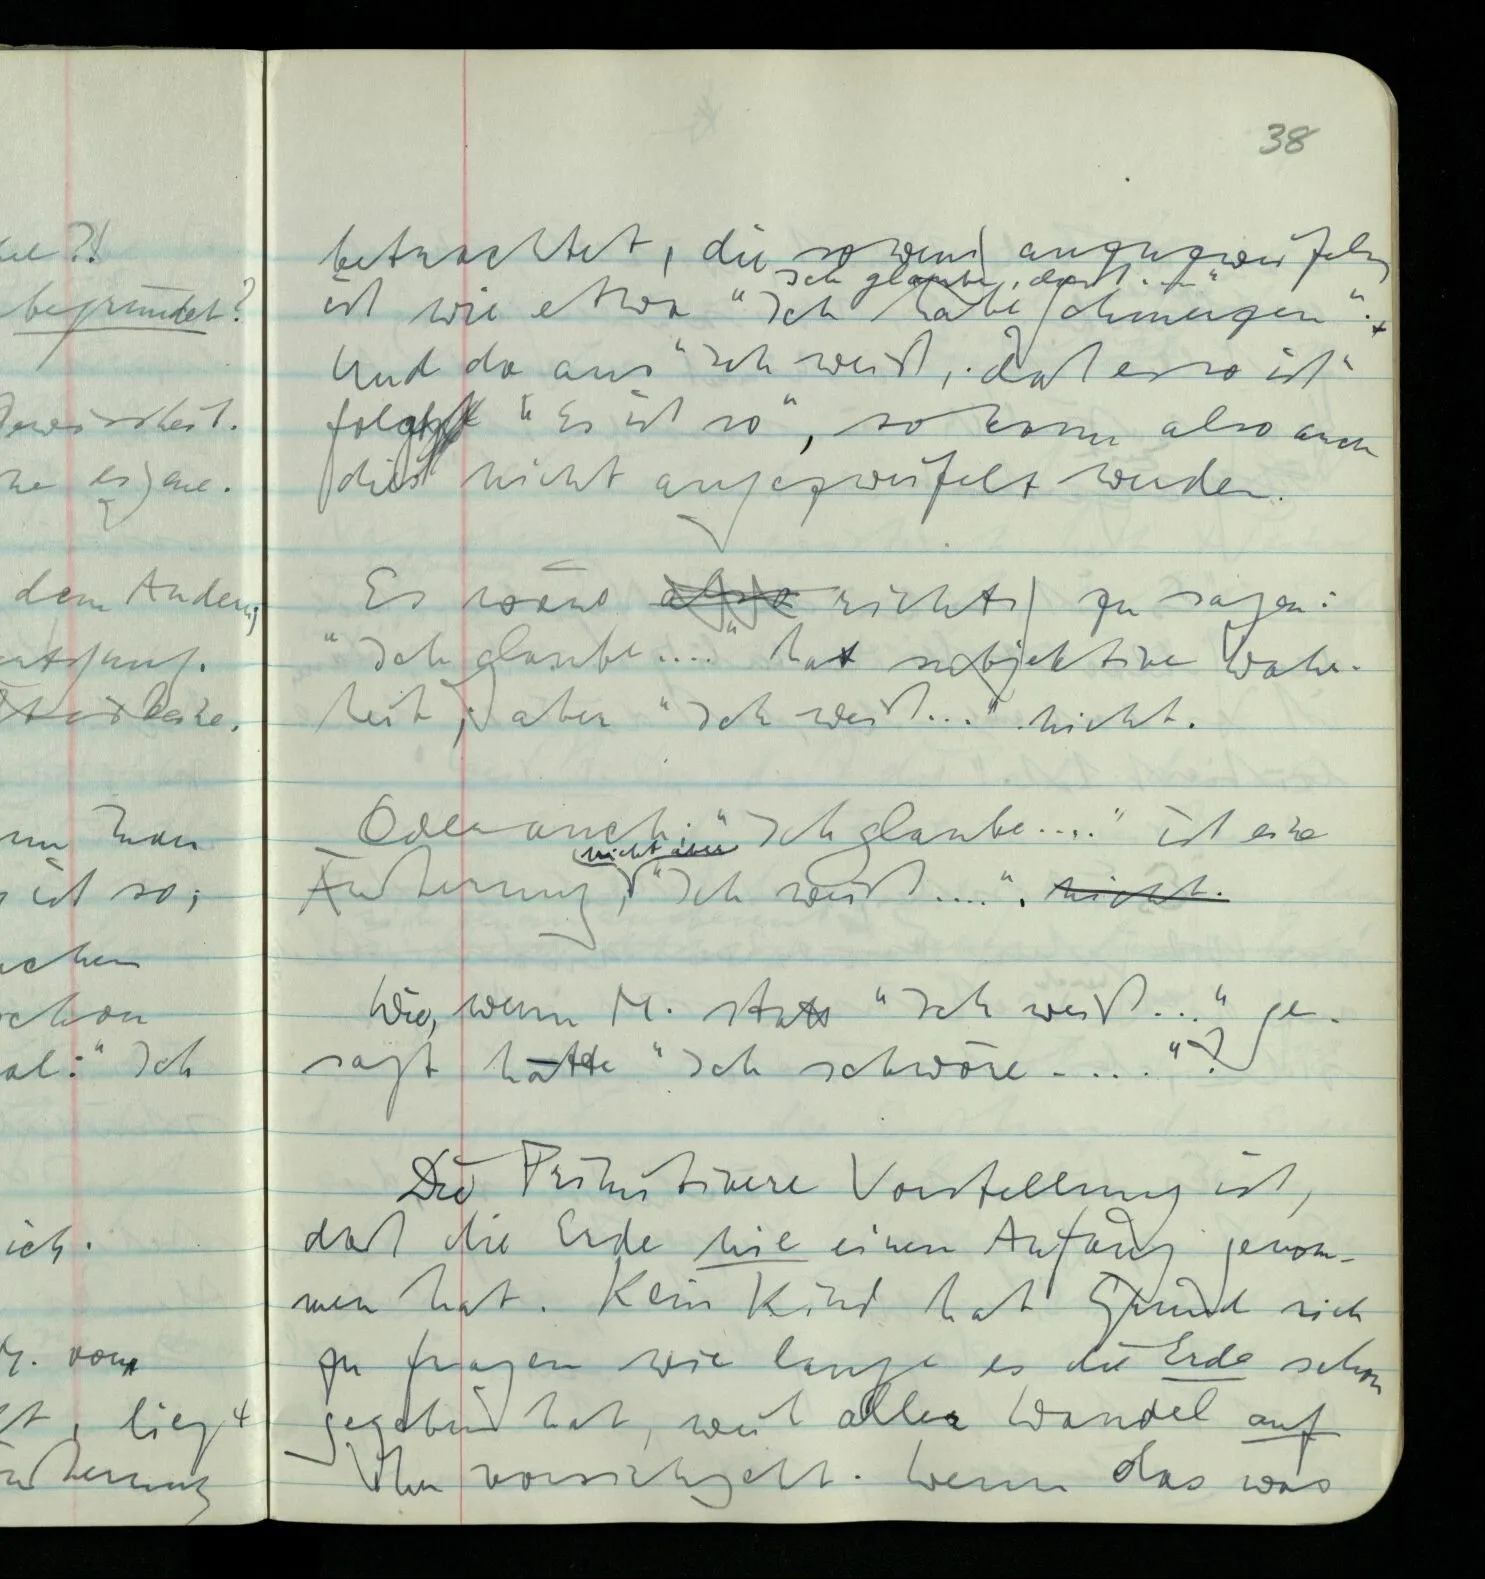 38
ee?!
begründet?
Gewissheit.
ne es) ene.
dem Andern,
Man
ist so;
schon
al: "Ich
ich.
M. vom
t, liegt
Äußerung
betrachtet, die so wenig anzuzweifeln
"Ich glaube, daß...."
ist wie etwa "Ich habe Schmerzen".
Und da aus "Ich weiß, daß es so ist"
folgt "Es ist so", so kann also auch
dies nicht angezweifelt werden.
Es wäre also richtig zu sagen:
"Ich glaube...." hat subjektive Wahr-
heit; aber "Ich weiß..." nicht.
Oder auch: "Ich glaube...." ist eine
nicht aber
Äußerung, "Ich weiß....". nicht.
Wie, wenn M. statt "Ich weiß..." ge-
sagt hätte "Ich schwöre....."?
Die Primitivere Vorstellung ist,
daß die Erde nie einen Anfang genom-
men hat. Kein Kind hat Grund sich
zu fragen wie lange es die Erde schon
gegeben hat, weil aller Wandel auf
ihr vorsichgeht. Wenn das was